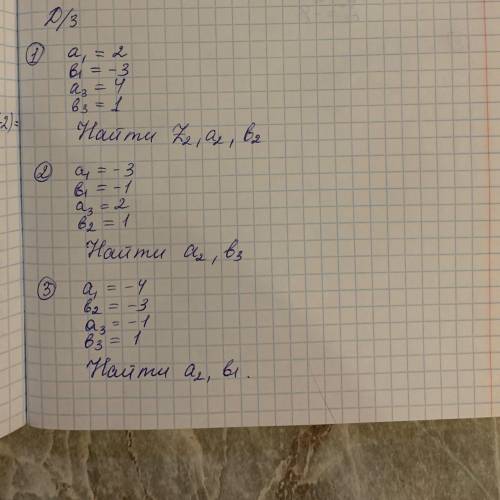 Д/з
-2)=
① a₁ = 2
в₁ = -3
a₃ = 4
в₃ = 1
Найти Z₂, a₂, в₂
② a₁ = -3
в₁ = -1
a₃ = 2
в₂ = 1
Найти a₂, в₃
③ a₁ = -4
в₂ = -3
a₃ = -1
в₃ = 1
Найти a₂, в₁.